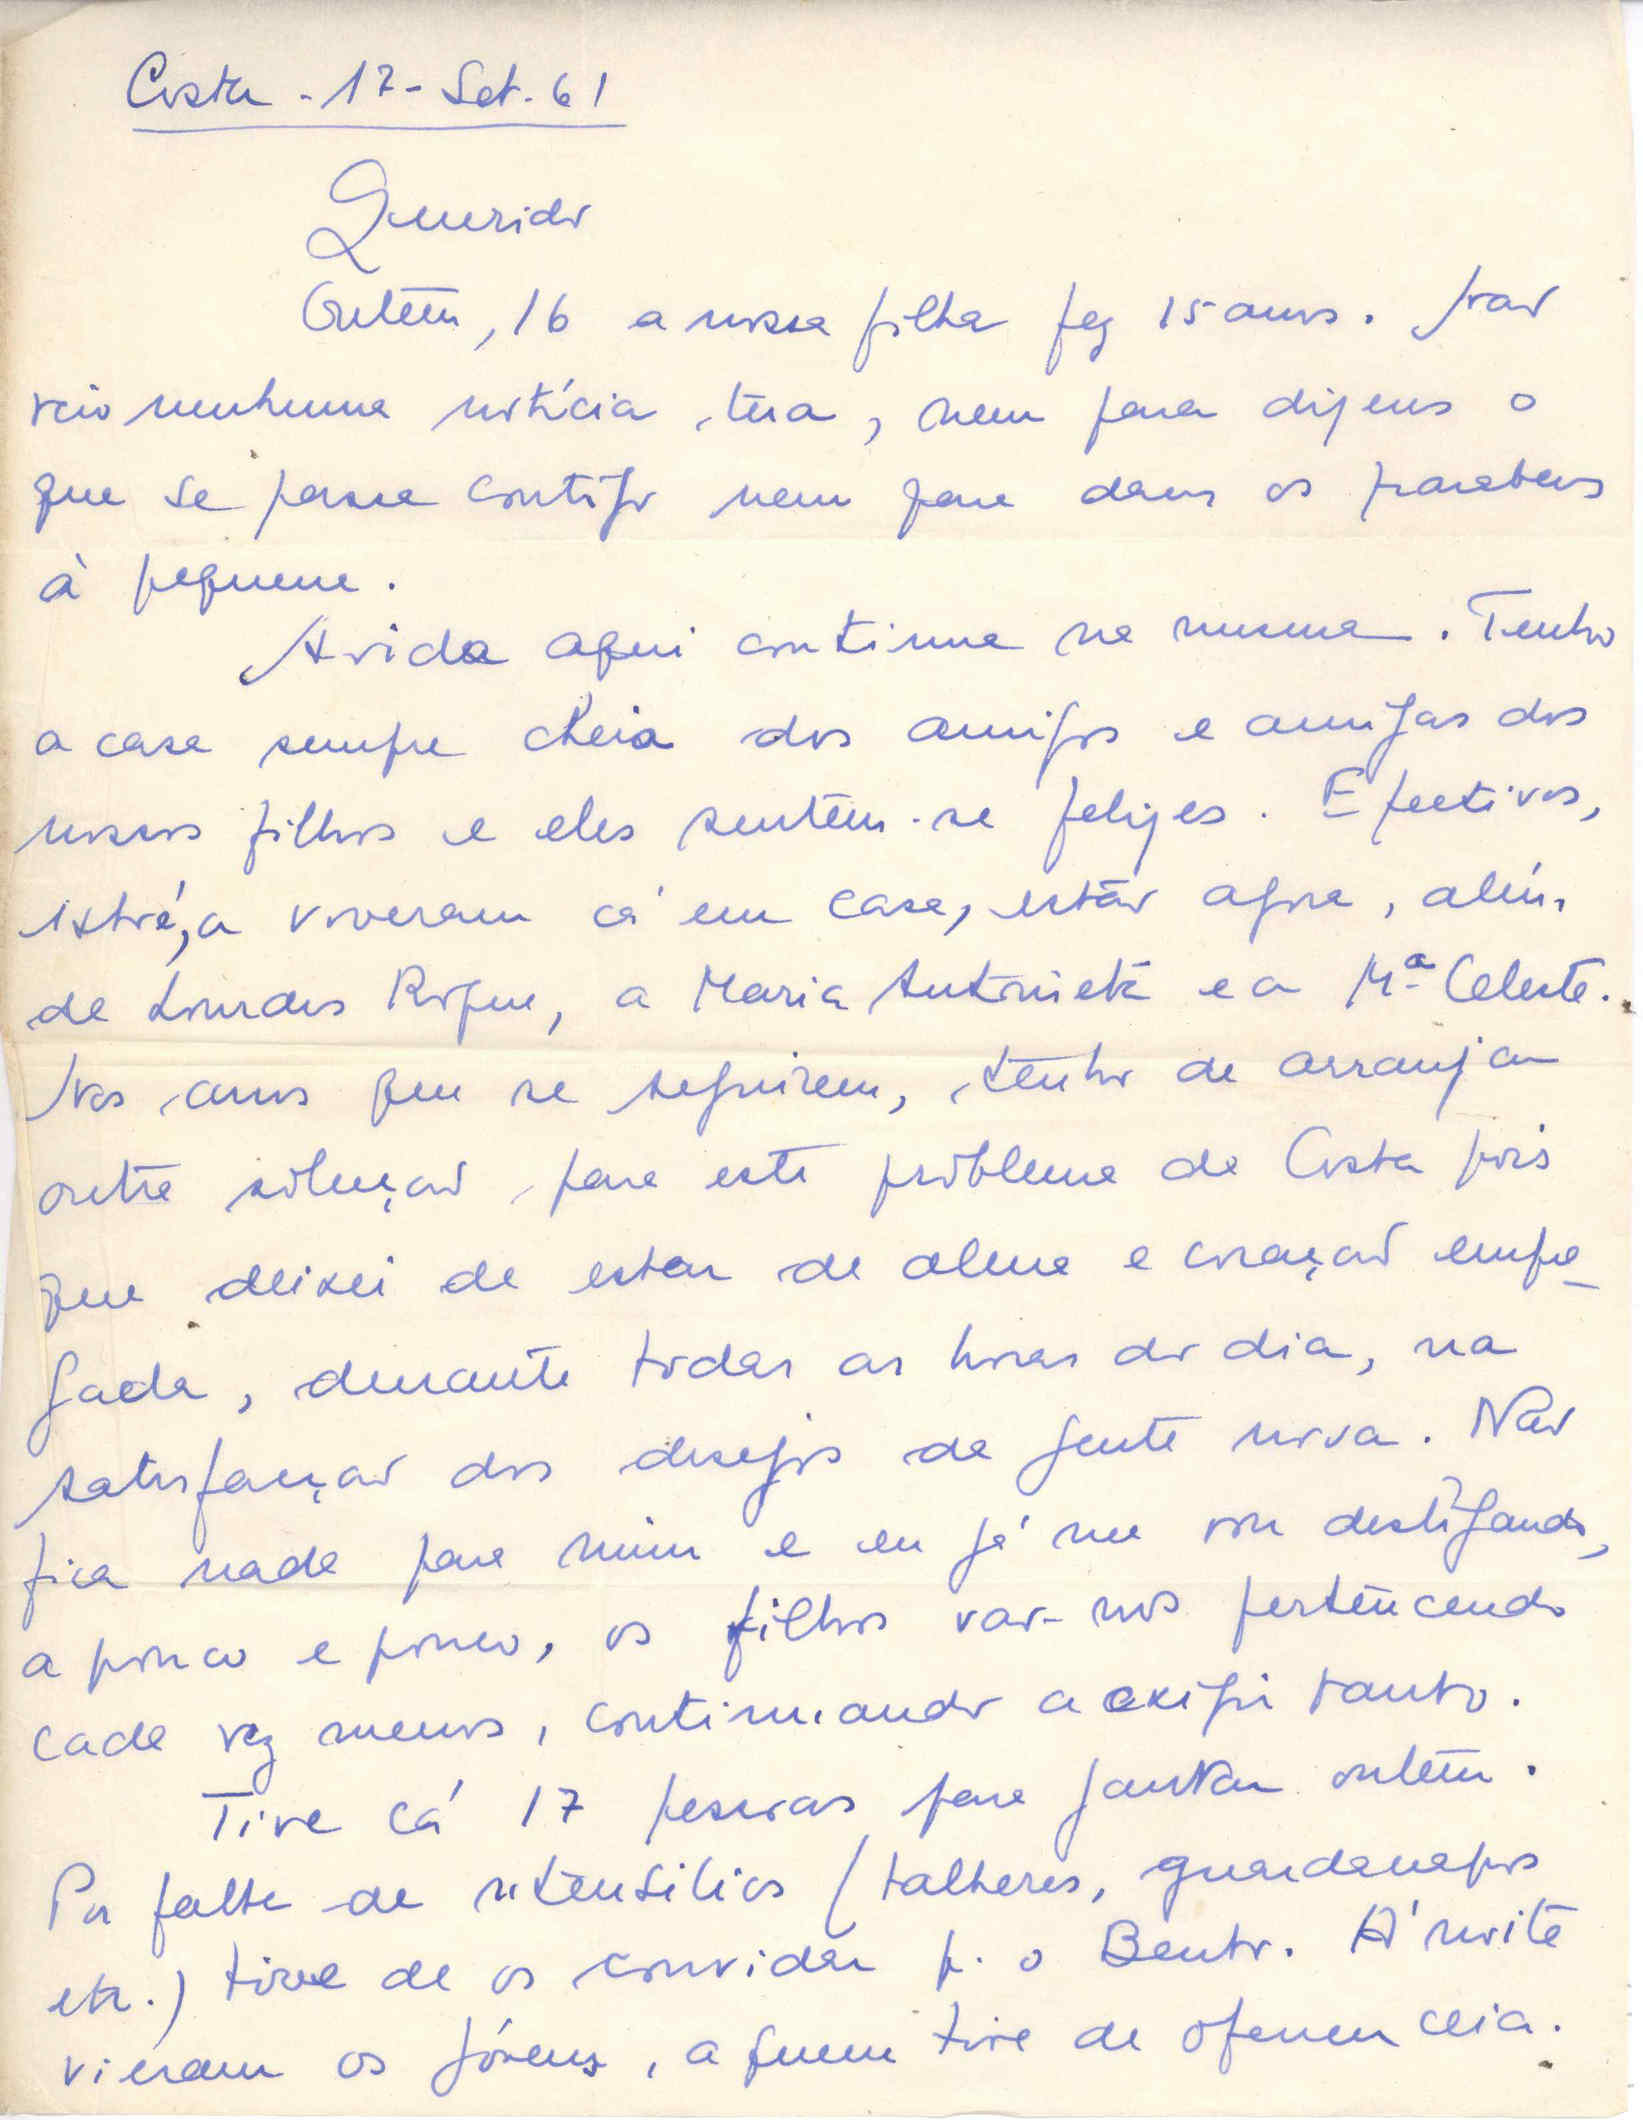 Costa - 17 - Set. 61
Querido
Ontem, 16 a nossa filha fez 15 anos. Não
veio nenhuma notícia tua, nem para dizeres o
que se passa contigo nem para dares os parabens
à pequena.
A vida aqui continua na mesma. Tenho
a casa sempre cheia dos amigos e amigas dos
nossos filhos e eles sentem-se felizes. Efectivos,
isto é, a viverem cá em casa, estão agora, além
da Lourdes Roque, a Maria Antonieta e a Mª Celeste.
Nos anos que se seguirem, tenho de arranjar
outra solução para este problema da Costa pois
que deixei de estar de alma e coração empe-
gada, durante todas as horas do dia, na
satisfação dos desejos da gente nova. Não
fica nada para mim e eu já me vou desligando,
a pouco e pouco, os filhos vão-nos pertencendo
cada vez menos, continuando a exigir tanto.
Tive cá 17 pessoas para jantar ontem.
Por falta de utensilios (talheres, guardanapos
etc.) tive de os convidar p. o Bento. Á noite
vieram os jóvens, a quem tive de oferecer ceia.